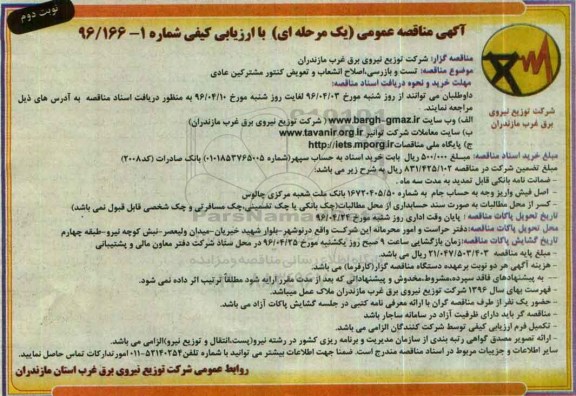 نوبت دوم
آگهی مناقصه عمومی (یک مرحله ای) با ارزیابی کیفی شماره ۱- ۹۶/۱۶۶
مناقصه گزار: شرکت توزیع نیروی برق غرب مازندران
موضوع مناقصه: تست و بازرسی،اصلاح انشعاب و تعویض کنتور مشترکین عادی
مهلت خرید و نحوه دریافت اسناد مناقصه:
داوطلبان می توانند از روز شنبه مورخ ۹۶/۰۴/۰۳ لغایت روز شنبه مورخ ۹۶/۰۴/۱۰ به منظور دریافت اسناد مناقصه به آدرس های ذیل
مراجعه نمایند.
الف) وب سایت www.bargh-gmaz.ir ( شرکت توزیع نیروی برق غرب مازندران)
ب) سایت معاملات شرکت توانیر www.tavanir.org.ir
ج) پایگاه ملی مناقصات http://iets.mporg.ir
شرکت توزیع نیروی
برق غرب مازندران
مبلغ خرید اسناد مناقصه: مبلغ ۵۰۰/۰۰۰ ریال بابت خرید اسناد به حساب سپهر(شماره ۰۱۰۱۸۵۳۷۶۵۰۰۵) بانک صادرات (کد۲۰۰۸)
مبلغ تضمین شرکت در مناقصه ۸۳۱/۴۲۵/۱۰۲ ریال به شرح زیر می باشد:
- ضمانت نامه بانکی قابل تمدید به مدت سه ماه .
- اصل فیش واریز وجه به حساب جام به شماره ۱۶۷۲۰۴۰۵/۵۰ بانک ملت شعبه مرکزی چالوس
- کسر از محل مطالبات به صورت سند حسابداری از محل مطالبات(چک بانکی یا چک تضمینی،چک مسافرتی و چک شخصی قابل قبول نمی باشد)
تاریخ تحویل پاکات مناقصه : پایان وقت اداری روز شنبه مورخ ۹۶/۰۴/۲۴
محل تحویل پاکات مناقصه:دفتر حراست و امور محرمانه این شرکت واقع درنوشهر -بلوار شهید خیریان-میدان ولیعصر-نبش کوچه نیرو-طبقه چهارم
تاریخ گشایش پاکات مناقصه:زمان بازگشایی ساعت ۹ صبح روز یکشنبه مورخ ۹۶/۰۴/۲۵ در محل ستاد شرکت دفتر معاون مالی و پشتیبانی
- مبلغ پایه مناقصه ۲۱/۴۴۷/۵۰۳/۴۰۳ ریال می باشد.
- هزینه آگهی هر دو نوبت برعهده دستگاه مناقصه گزار(کارفرما) می باشد.
- به پیشنهادهای فاقد سپرده،مشروط،مخدوش و پیشنهاداتی که بعد از مدت مقرر ارایه شود مطلقاً ترتیب اثر داده نمی شود.
- فهرست بهای سال ۱۳۹۶ شرکت توزیع نیروی برق غرب مازندران ملاک عمل میباشد.
- حضور یک نفر از طرف مناقصه گران با ارائه معرفی نامه کتبی در جلسه گشایش پاکات آزاد می باشد.
- مناقصه گر باید دارای ظرفیت آزاد در سامانه ساجار باشد
- تکمیل فرم ارزیابی کیفی توسط شرکت کنندگان الزامی می باشد.
- ارائه تصویر مصدق گواهی رتبه بندی از سازمان مدیریت و برنامه ریزی کشور در رشته نیرو(پست،انتقال و توزیع نیرو)الزامی می باشد.
سایر اطلاعات و جزییات مربوط در اسناد مناقصه مندرج است. ضمنا جهت اطلاعات بیشتر می توانید با شماره تلفن ۵۲۱۴۰۲۵۴-۰۱۱ امور تدارکات تماس حاصل نمایید.
روابط عمومی شرکت توزیع نیروی برق غرب استان مازندران